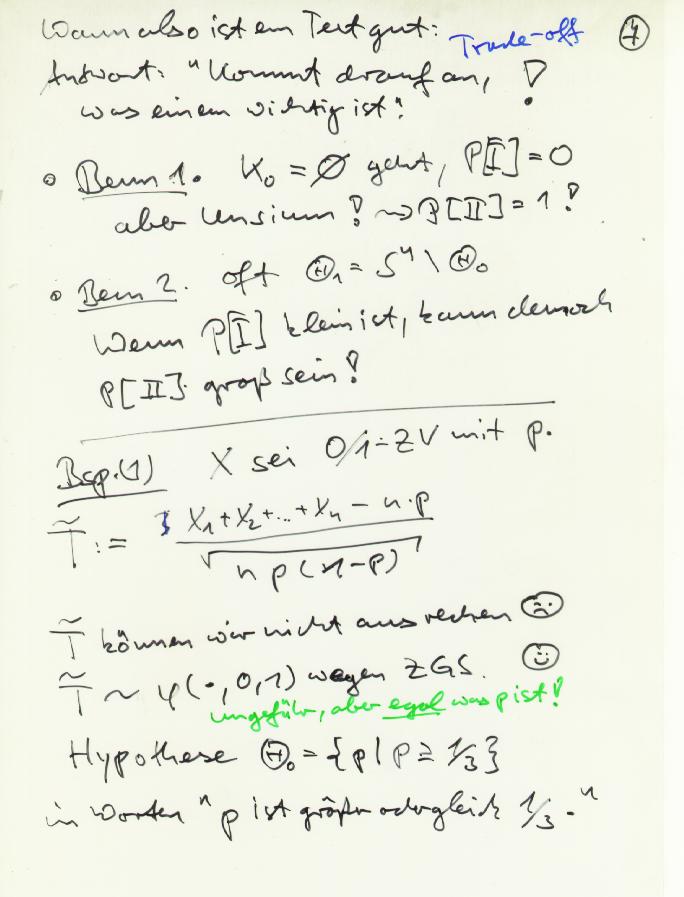 Wann also ist ein Test gut: Trade-off ④
Antwort: "Kommt drauf an, !
was einem wichtig ist".
• Bem 1. K₀ = ∅ geht, P[I] = 0
aber Unsinn! ⇝ P[II] = 1!
• Bem 2. oft Θ₁ = Sⁿ \ Θ₀
Wenn P[I] klein ist, kann dennoch
P[II] groß sein!
Bsp.(1) X sei 0/1-ZV mit p.
T̃ := (X₁+X₂+...+Xₙ − n·p) / √(n p(1−p))
T̃ können wir nicht ausrechen ☹
T̃ ~ φ(·,0,1) wegen ZGS. ☺
ungefähr, aber egal was p ist!
Hypothese Θ₀ = {p | p ≥ 1/3}
in Worten "p ist größer oder gleich 1/3."